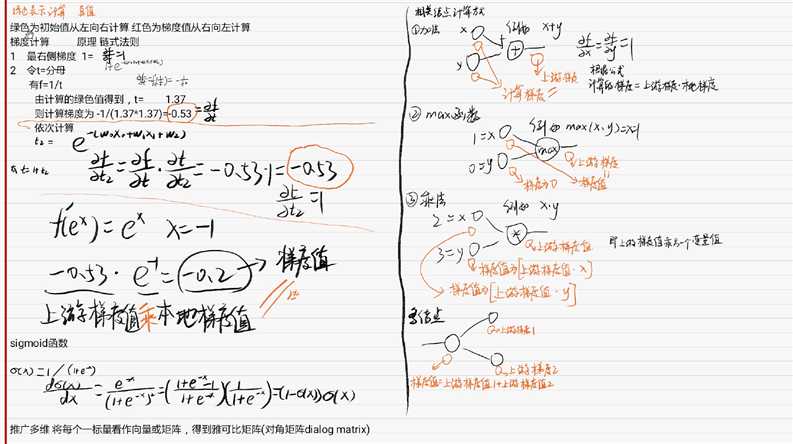 绿色为初始值从左向右计算 红色为梯度值从右向左计算
梯度计算 原理 链式法则
1 最右侧梯度 1=
2 令t=分母
有f=1/t
由计算的绿色值得到，t= 1.37
则计算梯度为 -1/(1.37*1.37)=-0.53 = ∂f/∂t
依次计算
t₂ = e^-(w₀x₀+w₁x₁+w₂)
∂f/∂t₂ = ∂f/∂t · ∂t/∂t₂ = -0.53·1 = -0.53
∂t/∂t₂ = 1
f(e^x) = e^x x=-1
-0.53 · e^-1 = -0.2 → 梯度值
上游梯度值乘本地梯度值
sigmoid函数
σ(x)=1/(1+e^-x)
dσ(x)/dx = e^-x/(1+e^-x)² = (1+e^-x-1/1+e^-x)(1/1+e^-x) = (1-σ(x))σ(x)
推广多维 将每个一标量看作向量或矩阵，得到雅可比矩阵(对角矩阵dialog matrix)
相关结点计算方式
①加法 x 例如 x+y
y +
∂f/∂x = ∂f/∂y = 1
上游梯度
计算梯度=上游梯度·本地梯度
② max函数
1=x 例如 max(x,y)=x=1
0=y max
上游梯度
梯度为0 梯度值
③乘法 例如 x·y
2=x
3=y *
上游梯度值
梯度值为[上游梯度值·x]
梯度值为[上游梯度值·y]
即上游梯度值乘另一个变量值
多结点
上游梯度1
上游梯度2
梯度值=上游梯度值1+上游梯度值2